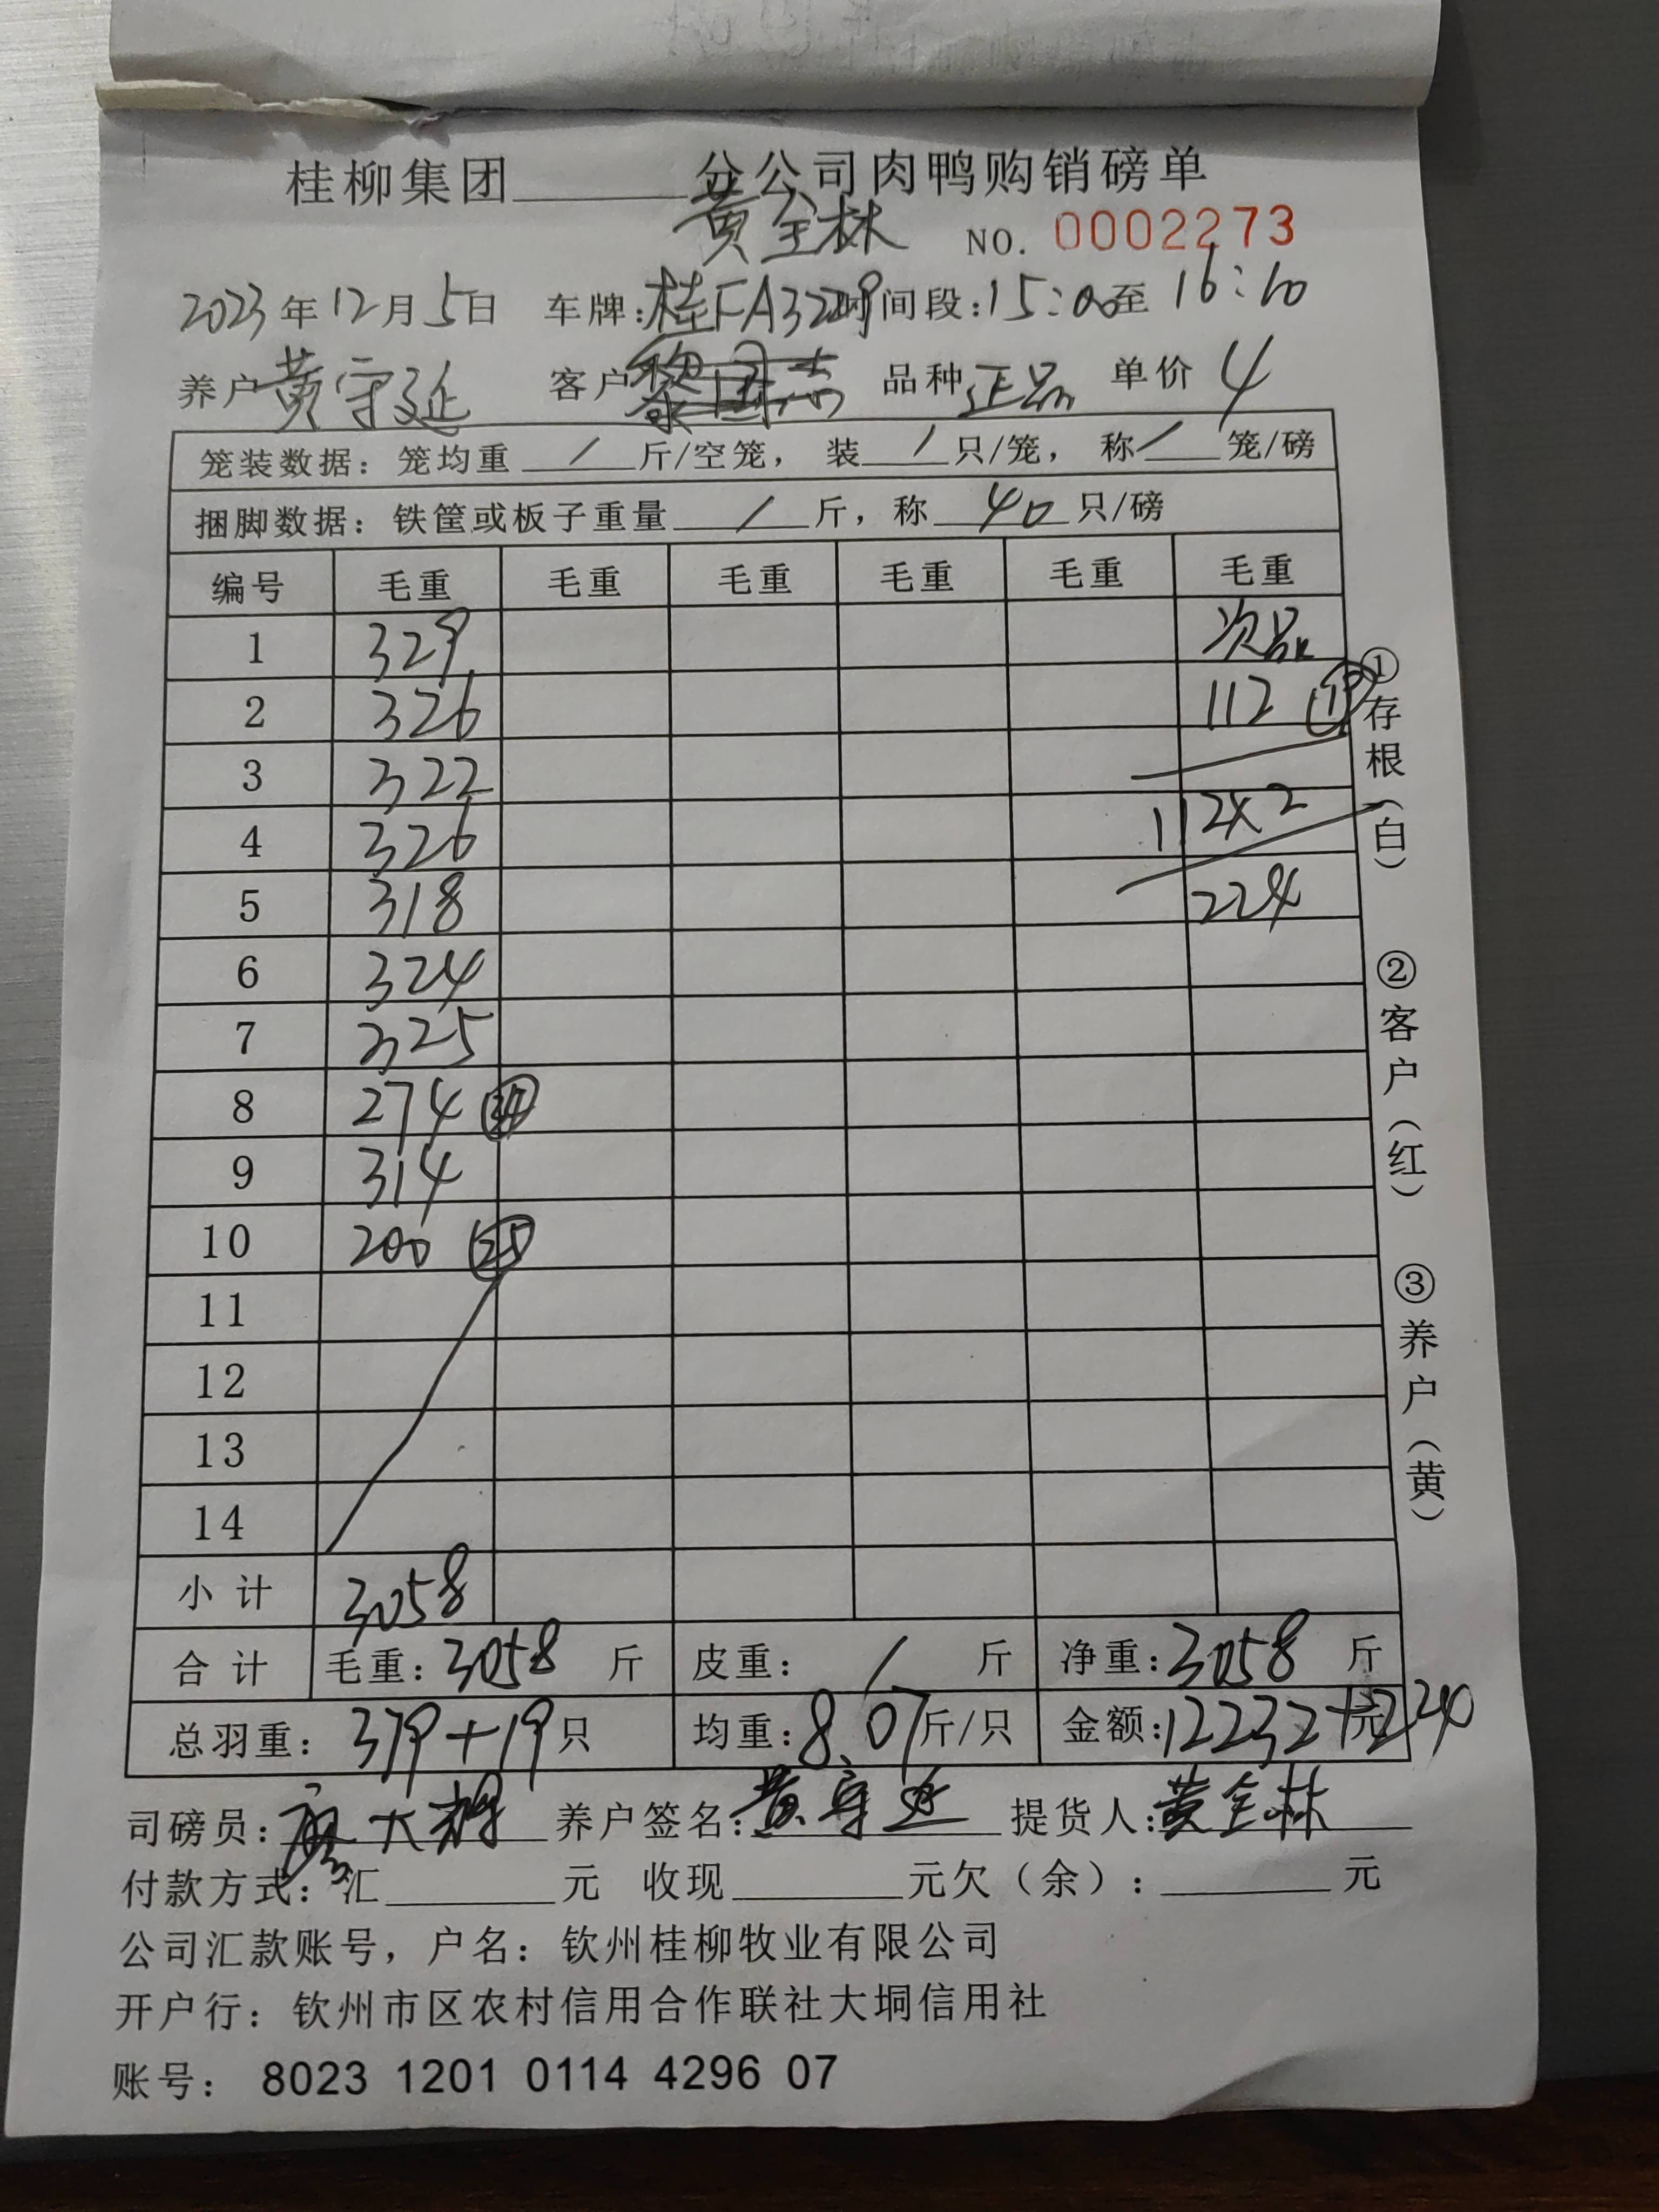 桂柳集团______分公司肉鸭购销磅单
黄全林 NO. 0002273
2023年12月5日 车牌:桂FA3229时间段:15:00至16:10
养户黄守延 客户 品种正品 单价4
笼装数据: 笼均重 / 斤/空笼, 装 / 只/笼, 称 / 笼/磅
捆脚数据: 铁筐或板子重量 / 斤, 称 40 只/磅
编号 毛重 毛重 毛重 毛重 毛重 毛重
1 329 次品
2 326 112 ⑲
3 322
4 326 112×2
5 318 224
6 324
7 325
8 274 ㉞
9 314
10 200 ㉕
11
12
13
14
小计 3058
合计 毛重:3058斤 皮重: / 斤 净重:3058斤
总羽重:379+19只 均重:8.07斤/只 金额:12232+元224
司磅员: 廖大 养户签名:黄守延 提货人:黄全林
付款方式: 汇______元 收现______元欠(余):______元
公司汇款账号, 户名: 钦州桂柳牧业有限公司
开户行: 钦州市区农村信用合作联社大垌信用社
账号: 8023 1201 0114 4296 07
①存根(白) ②客户(红) ③养户(黄)